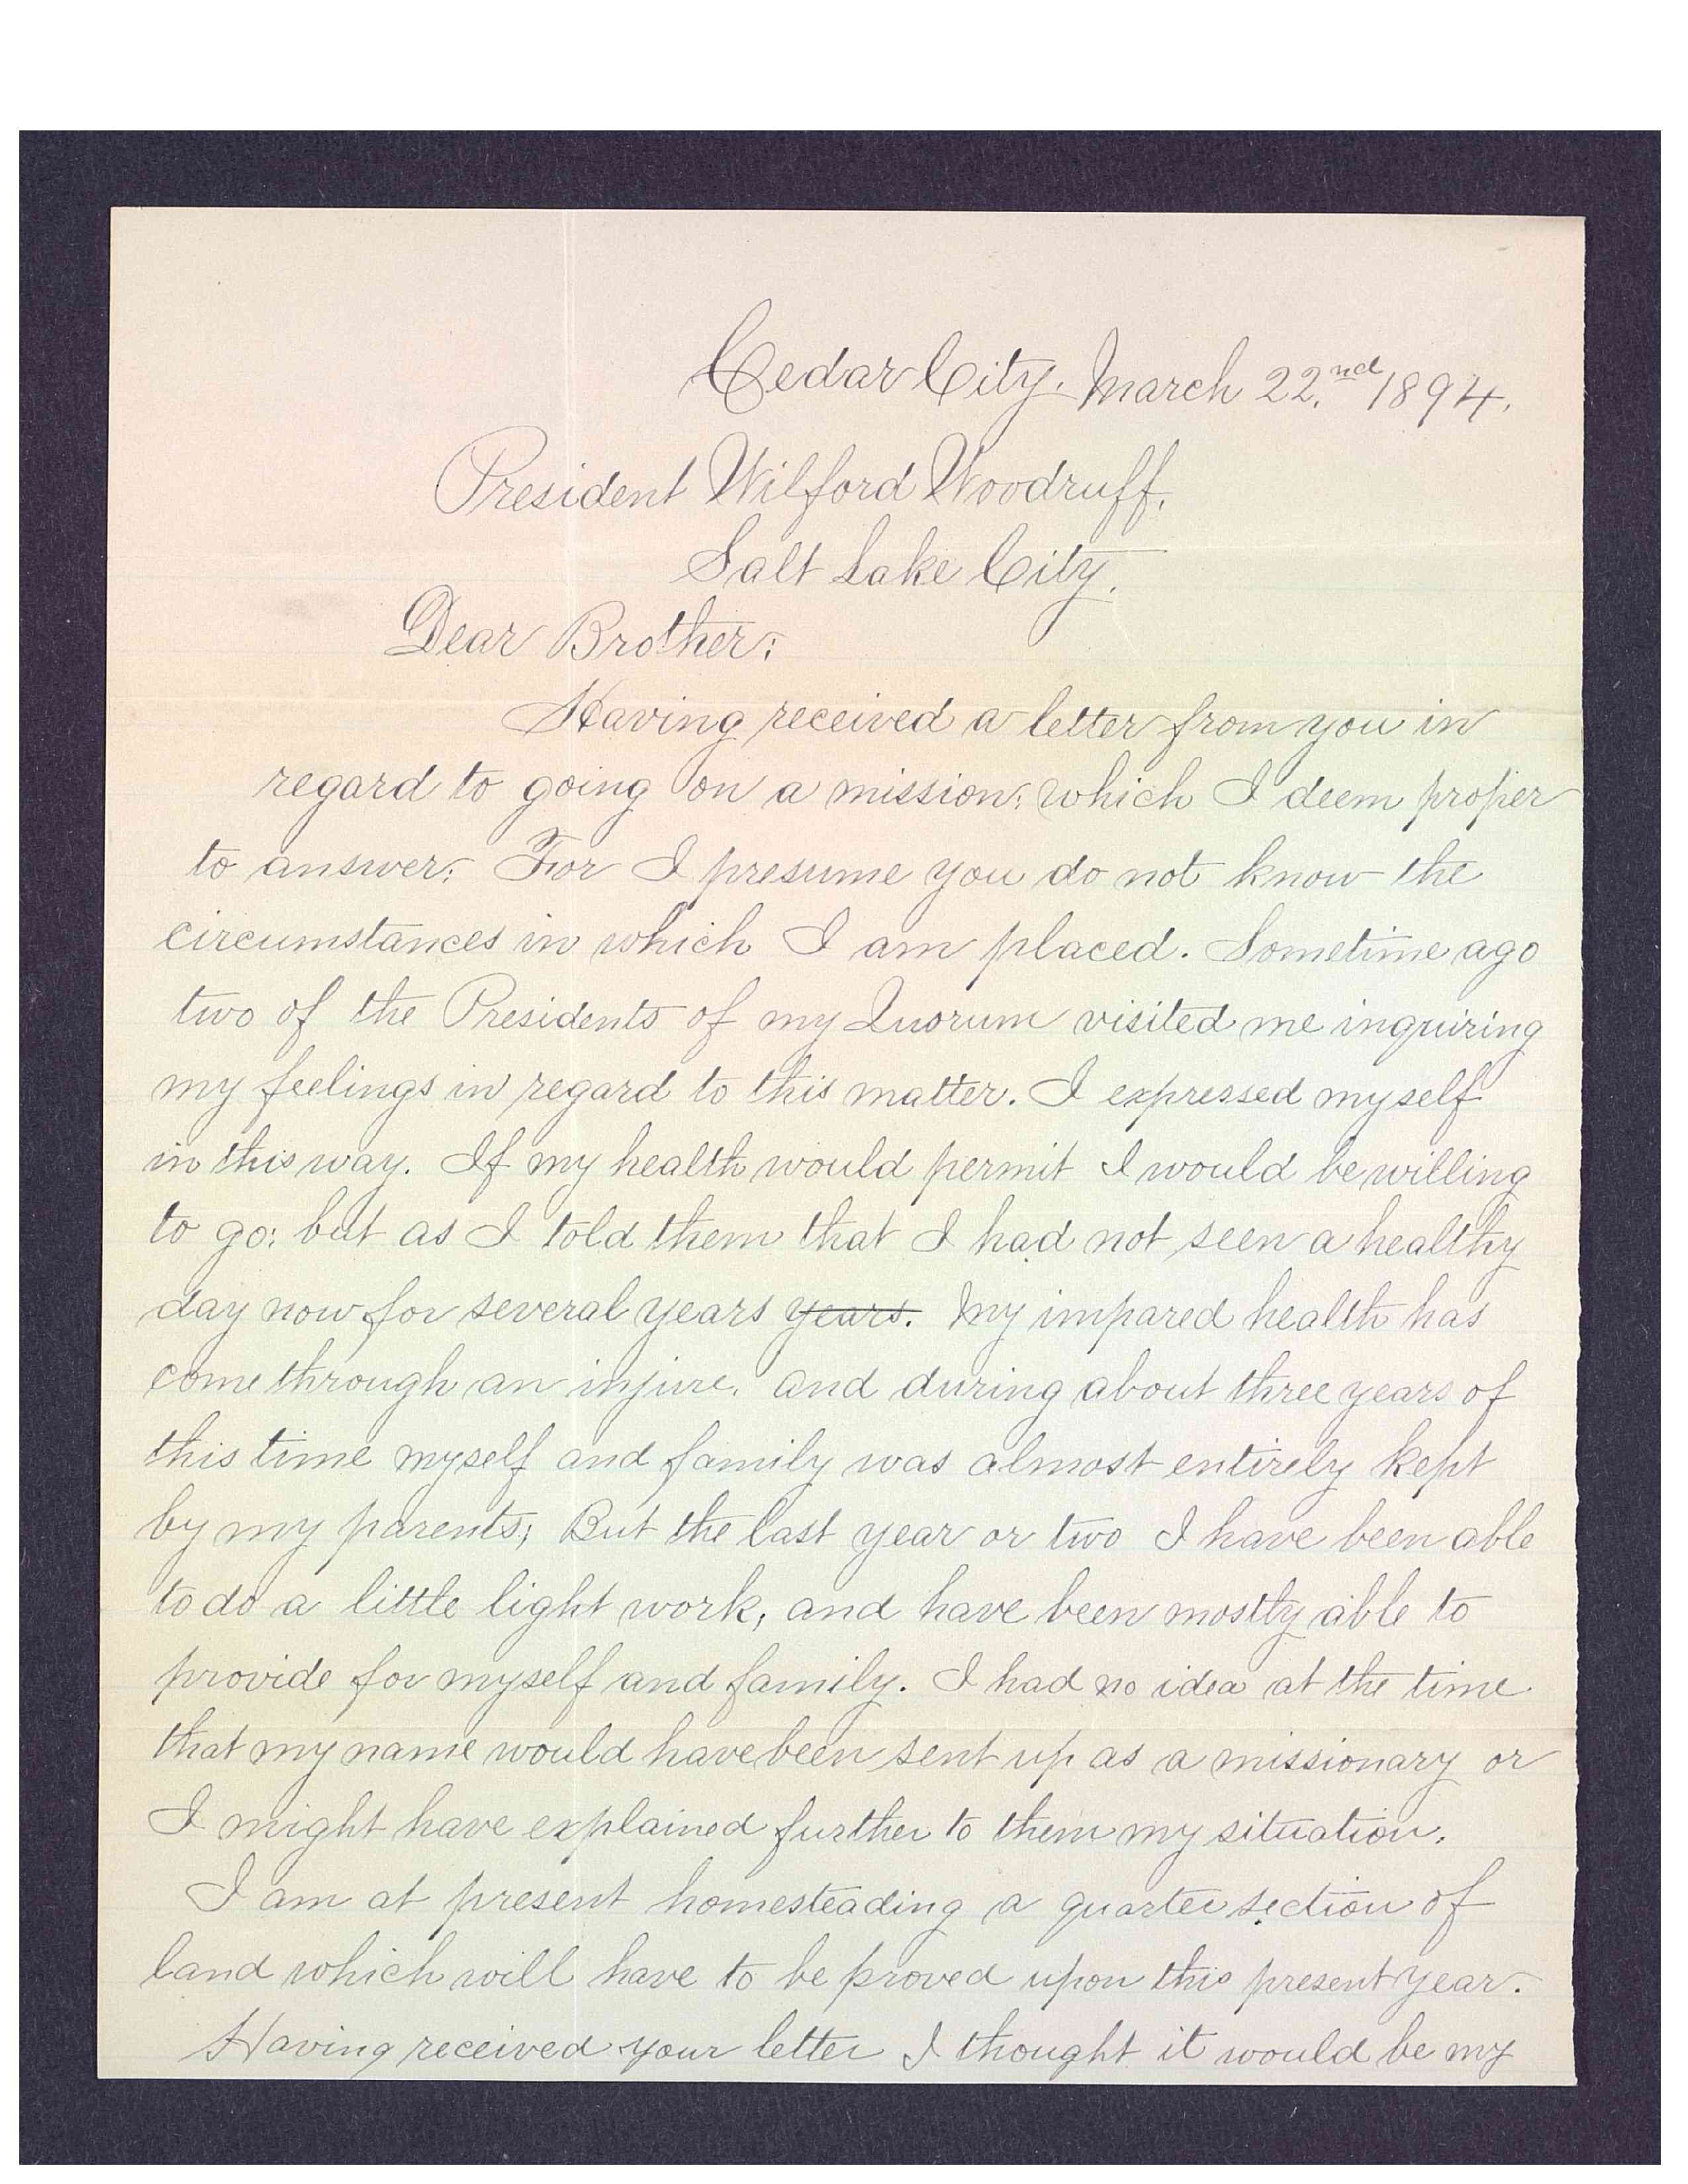 Cedar City. March 22.nd 1894.
President Wilford Woodruff.
Salt Lake City.
Dear Brother:
Having received a letter from you in
regard to going on a mission: which I deem proper
to answer: For I presume you do not know the
circumstances in which I am placed. Sometime ago
two of the Presidents of my Quorum visited me inquiring
my feelings in regard to this matter. I expressed myself
in this way. If my health would permit I would be willing
to go: but as I told them that I had not seen a healthy
day now for several years years. My impared health has
come through an injure. and during about three years of
this time myself and family was almost entirely kept
by my parents; But the last year or two I have been able
to do a little light work, and have been mostly able to
provide for myself and family. I had no idea at the time
that my name would have been sent up as a missionary or
I might have explained further to them my situation.
I am at present homesteading a quarter section of
land which will have to be proved upon this present year.
Having received your letter I thought it would be my